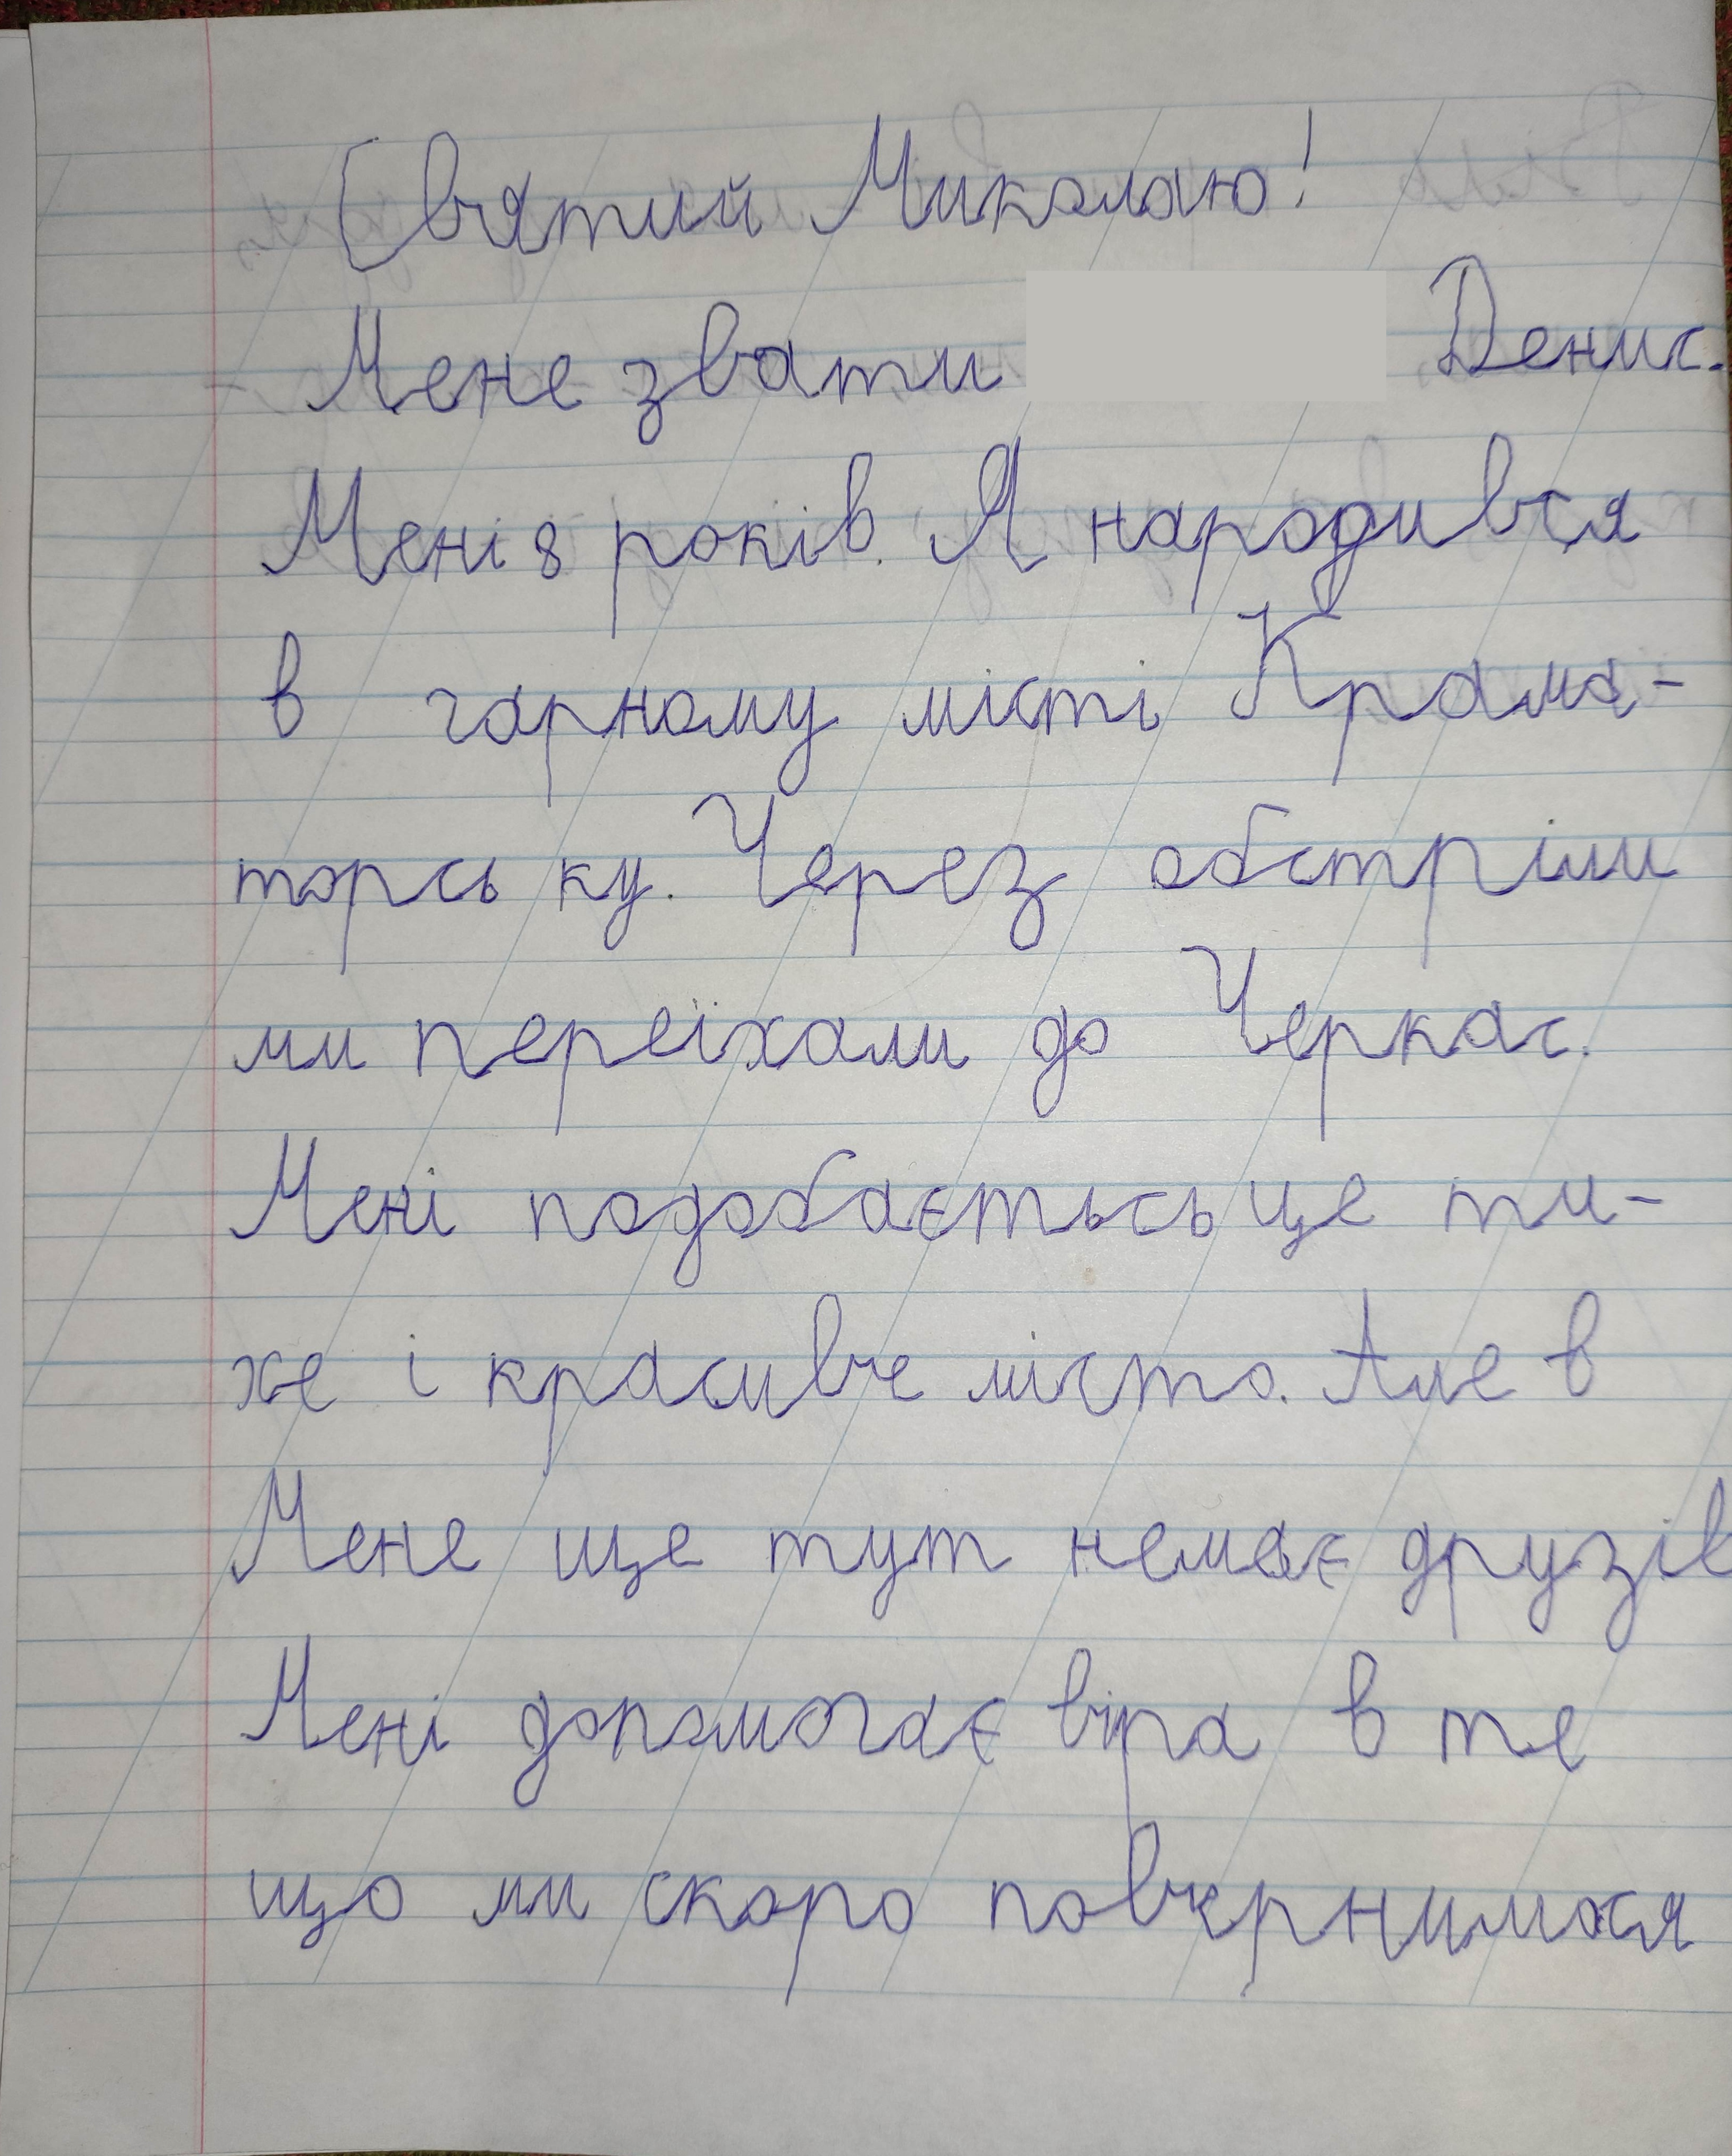 Святий Миколаю!
Мене звати Денис.
Мені 8 років. Я народився
в гарному місті Крама-
торсь ку. Через обстріли
ми переїхали до Черкас.
Мені подобаєтьсь це ти-
хе і красивче місто. Але в
Мене ще тут немає друзів
Мені допомогає віра в те
що ми скоро повернимося